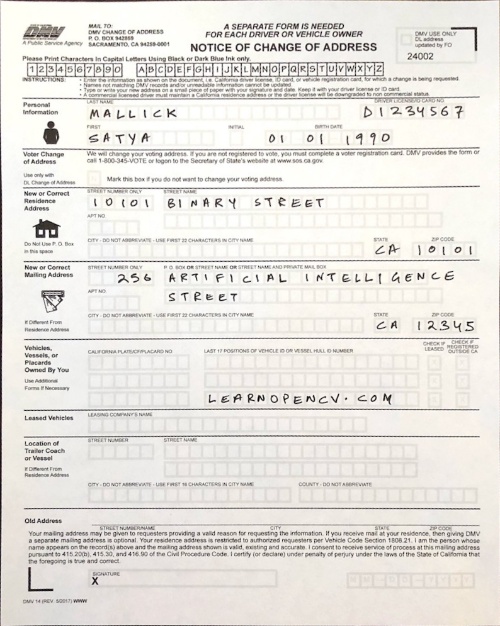 DMV
A Public Service Agency
MAIL TO:
DMV CHANGE OF ADDRESS
P. O. BOX 942859
SACRAMENTO, CA 94269-0001
A SEPARATE FORM IS NEEDED
FOR EACH DRIVER OR VEHICLE OWNER
NOTICE OF CHANGE OF ADDRESS
DMV USE ONLY
DL address
updated by FO
24002
Please Print Characters In Capital Letters Using Black or Dark Blue Ink only.
1 2 3 4 5 6 7 8 9 0 A B C D E F G H I J K L M N O P Q R S T U V W X Y Z
INSTRUCTIONS:
• Enter the information as shown on the document, i.e. California driver license, ID card, or vehicle registration card, for which a change is being requested.
• Names not matching DMV records and/or unreadable information cannot be updated.
• Type or write your new address on a small piece of paper with your signature and date. Keep it with your driver license or ID card.
• A commercial licensed driver must maintain a California residence address or the driver license will be downgraded to non commercial status.
Personal
Information
LAST NAME
DRIVER LICENSE/ID CARD NO.
MALLICK D1234567
FIRST INITIAL BIRTH DATE
SATYA 01 01 1990
Voter Change
of Address
We will change your voting address. If you are not registered to vote, you must complete a voter registration card. DMV provides the form or
call 1-800-345-VOTE or logon to the Secretary of State's website at www.sos.ca.gov.
Use only with
DL Change of Address
Mark this box if you do not want to change your voting address.
New or Correct
Residence
Address
STREET NUMBER ONLY STREET NAME
10101 BINARY STREET
APT NO.
Do Not Use P. O. Box
in this space
CITY - DO NOT ABBREVIATE - USE FIRST 22 CHARACTERS IN CITY NAME STATE ZIP CODE
CA 10101
New or Correct
Mailing Address
STREET NUMBER ONLY P. O. BOX OR STREET NAME OR STREET NAME AND PRIVATE MAIL BOX
256 ARTIFICIAL INTELLIGENCE
APT NO.
STREET
If Different From
Residence Address
CITY - DO NOT ABBREVIATE - USE FIRST 22 CHARACTERS IN CITY NAME STATE ZIP CODE
CA 12345
Vehicles,
Vessels, or
Placards
Owned By You
CALIFORNIA PLATE/CF/PLACARD NO. LAST 17 POSITIONS OF VEHICLE ID OR VESSEL HULL ID NUMBER
CHECK IF
LEASED
CHECK IF
REGISTERED
OUTSIDE CA
Use Additional
Forms If Necessary
LEARNOPENCV.COM
Leased Vehicles
LEASING COMPANY'S NAME
Location of
Trailer Coach
or Vessel
STREET NUMBER STREET NAME
If Different From
Residence Address
CITY - DO NOT ABBREVIATE - USE FIRST 16 CHARACTERS IN CITY NAME COUNTY - DO NOT ABBREVIATE
Old Address
STREET NUMBER/NAME CITY STATE ZIP CODE
Your mailing address may be given to requesters providing a valid reason for requesting the information. If you receive mail at your residence, then giving DMV
a separate mailing address is optional. Your residence address is restricted to authorized requesters per Vehicle Code Section 1808.21. I am the person whose
name appears on the record(s) above and the mailing address shown is valid, existing and accurate. I consent to receive service of process at this mailing address
pursuant to 415.20(b), 415.30, and 416.90 of the Civil Procedure Code. I certify (or declare) under penalty of perjury under the laws of the State of California that
the foregoing is true and correct.
SIGNATURE
X
DMV 14 (REV. 5/2017) WWW